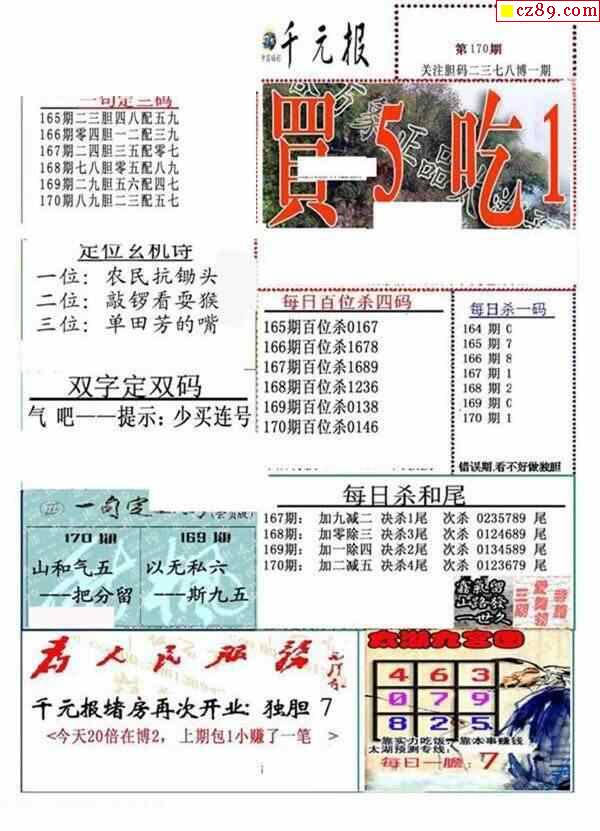 cz89.com
千元报
第170期
关注胆码二三七八博一期
一句定三码
165期二三胆四八配五九
166期零四胆一二配三九
167期二四胆三五配零七
168期七八胆零五配八九
169期二九胆五六配四七
170期八九胆二三配五七
買5吃1
定位玄机诗
一位：农民抗锄头
二位：敲锣看耍猴
三位：单田芳的嘴
每日百位杀四码
165期百位杀0167
166期百位杀1678
167期百位杀1689
168期百位杀1236
169期百位杀0138
170期百位杀0146
每日杀一码
164 期 0
165 期 7
166 期 8
167 期 1
168 期 2
169 期 0
170 期 1
错误期,看不好做独胆
双字定双码
气 吧——提示：少买连号
一句定
(会员版)
170期
山和气五
——把分留
169期
以无私六
——斯九五
每日杀和尾
167期： 加九减二 决杀1尾 次杀 0235789 尾
168期： 加零除三 决杀3尾 次杀 0124689 尾
169期： 加一除四 决杀2尾 次杀 0134589 尾
170期： 加二减五 决杀4尾 次杀 0123679 尾
为人民服务
千元报堵房再次开业：独胆 7
<今天20倍在博2，上期包1小赚了一笔 >
太湖九宫图
4 6 3
0 7 9
8 2 5
靠实力吃饭，靠本事赚钱
太湖预测专线：
每日一胆：7